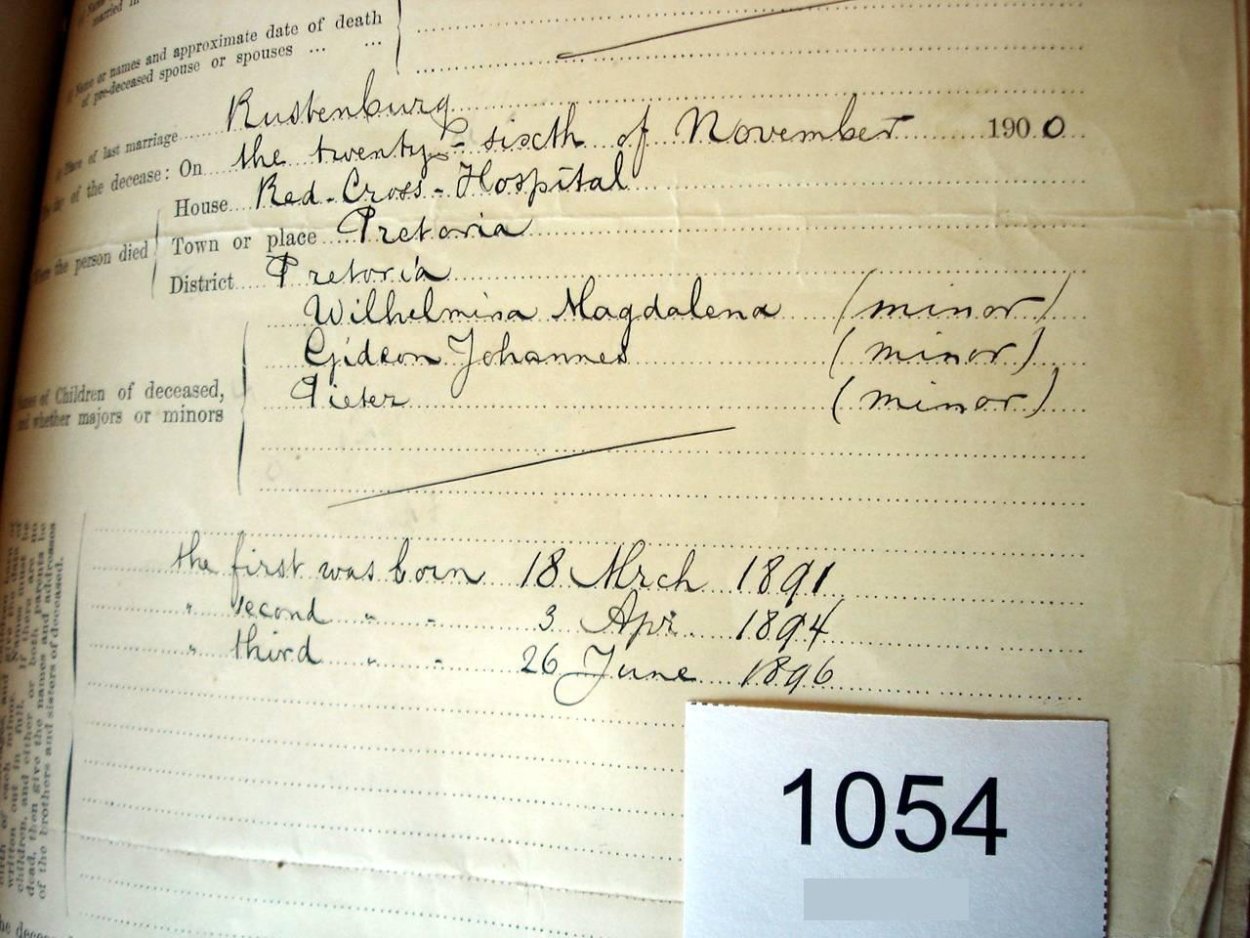 married in
Name or names and approximate date of death
of pre-deceased spouse or spouses ... ...
Place of last marriage Rustenburg
of the decease: On the twenty-sixth of November 1900
House Red-Cross-Hospital
the person died Town or place Pretoria
District Pretoria
Wilhelmina Magdalena (minor)
Gideon Johannes (minor)
Pieter (minor)
of Children of deceased,
whether majors or minors
the first was born 18 Mrch 1891
" second " " 3 Apr. 1894
" third " " 26 June 1896
birth of each minor.
written out in full. If there are no
children, and either or both parents be
dead, then give the names and addresses
of the brothers and sisters of deceased.
1054